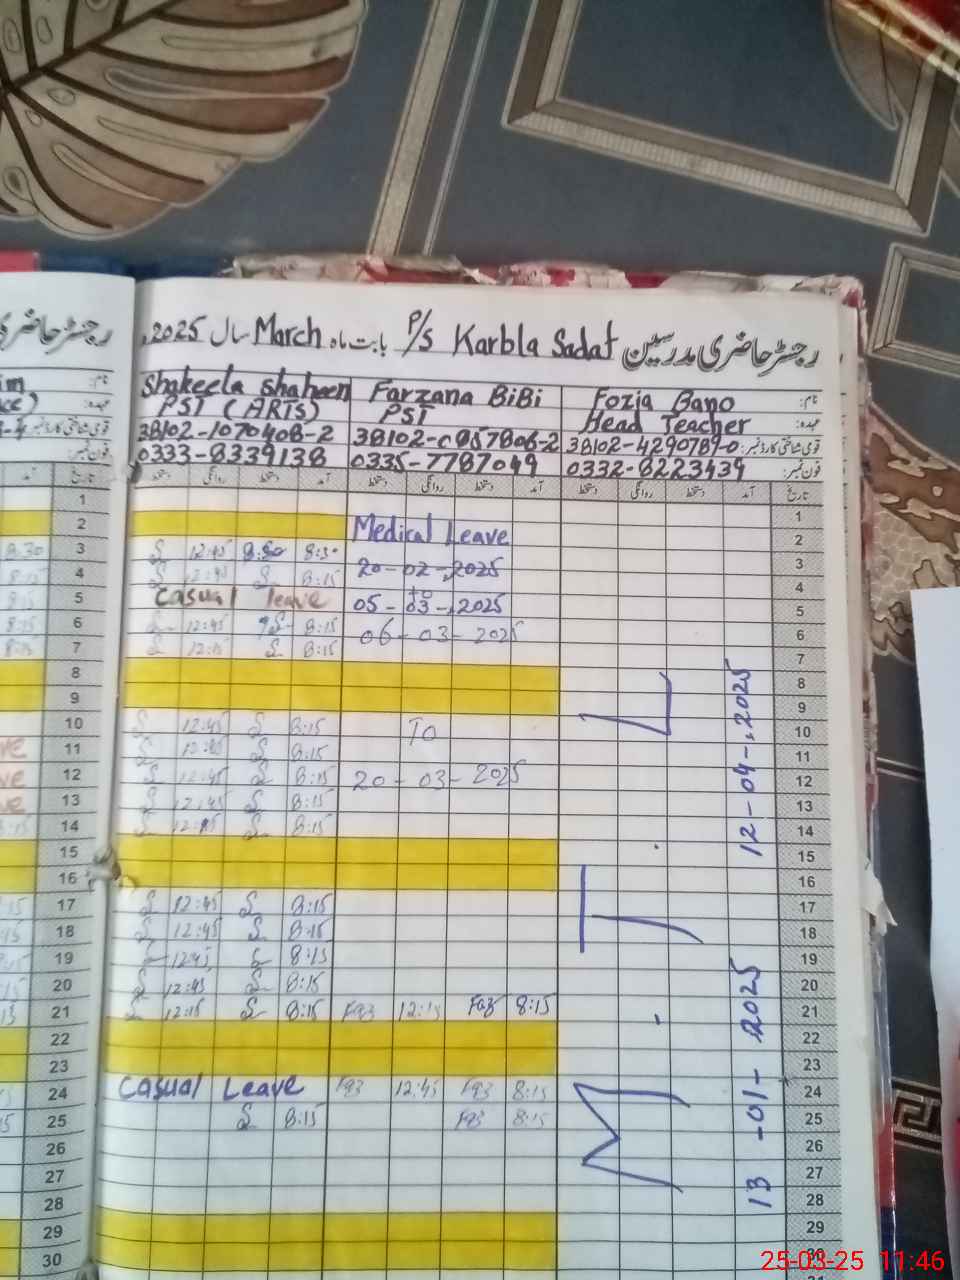 رجسٹر حاضری مدرسین P/S Karbla Sadat بابت ماہ March سال 2025ء
نام: Fozia Bano Farzana BiBi Shakeela Shaheen
عہدہ: Head Teacher PST PST (ARTS)
قومی شناختی کارڈ نمبر: 38102-4290789-0 38102-0857806-2 38102-1070408-2
فون نمبر: 0332-8223439 0335-7787049 0333-8339138
تاریخ آمد دستخط روانگی دستخط آمد دستخط روانگی دستخط آمد دستخط روانگی دستخط
1
2 Medical Leave
3 8:30 8:30 12:45
4 20-02-2025 8:15 12:45
to
5 05-03-2025 Casual leave
6 06-03-2025 8:15 12:45
7 8:15 12:45
8
9
10 TO 8:15 12:45
11 8:15 12:45
12 20-03-2025 8:15 12:45
13 8:15 12:45
14 8:15 12:45
15
16
17 8:15 12:45
18 8:15 12:45
19 8:15 12:45
20 8:15 12:45
21 8:15 Faz 12:15 Faz 8:15 12:15
22
23
24 8:15 Faz 12:45 Faz Casual Leave
25 8:15 Faz 8:15
26
27
28
29
30
M.T.L
13-01-2025 12-04-2025
25-03-25 11:46